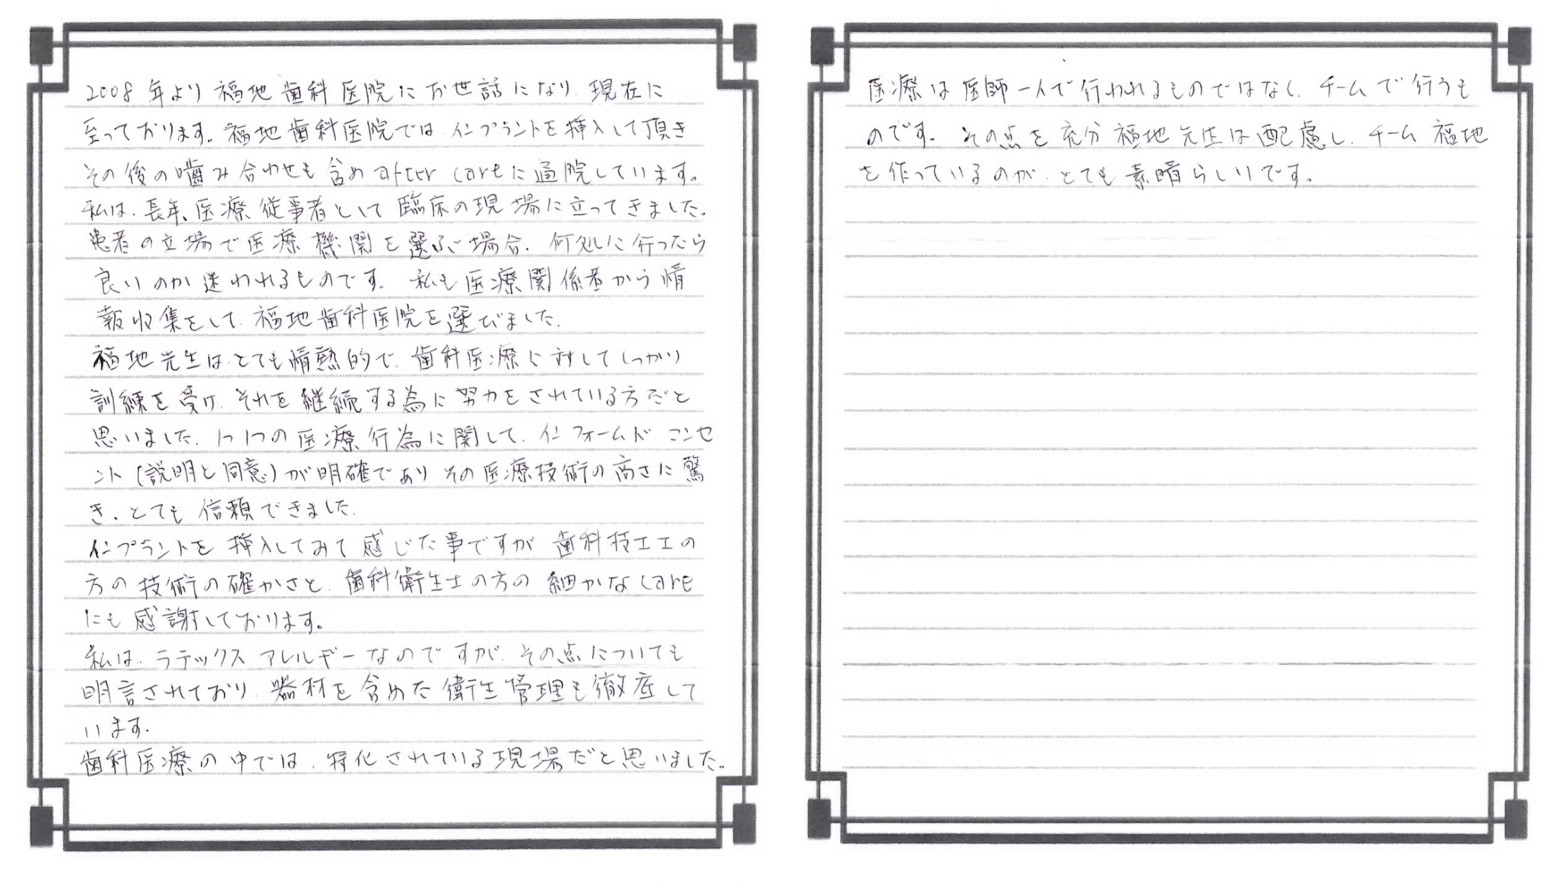 2008年より福地歯科医院にお世話になり、現在に
至っております。福地歯科医院では、インプラントを挿入して頂き
その後の噛み合わせも含めafter careに通院しています。
私は、長年、医療従事者として臨床の現場に立ってきました。
患者の立場で医療機関を選ぶ場合、何処に行ったら
良いのか迷われるものです。私も医療関係者から情
報収集をして、福地歯科医院を選びました。
福地先生は、とても情熱的で、歯科医療に対してしっかり
訓練を受け、それを継続する為に努力をされている方だと
思いました。1つ1つの医療行為に関して、インフォームドコンセ
ント(説明と同意)が明確であり、その医療技術の高さに驚
き、とても信頼できました。
インプラントを挿入してみて感じた事ですが、歯科技工士の
方の技術の確かさと、歯科衛生士の方の細かなcare
にも感謝しております。
私は、ラテックスアレルギーなのですが、その点についても
明言されており、器材を含めた衛生管理も徹底して
います。
歯科医療の中では、特化されている現場だと思いました。
医療は医師一人で行われるものではなく、チームで行うも
のです。その点を充分福地先生は配慮し、チーム福地
を作っているのが、とても素晴らしいです。